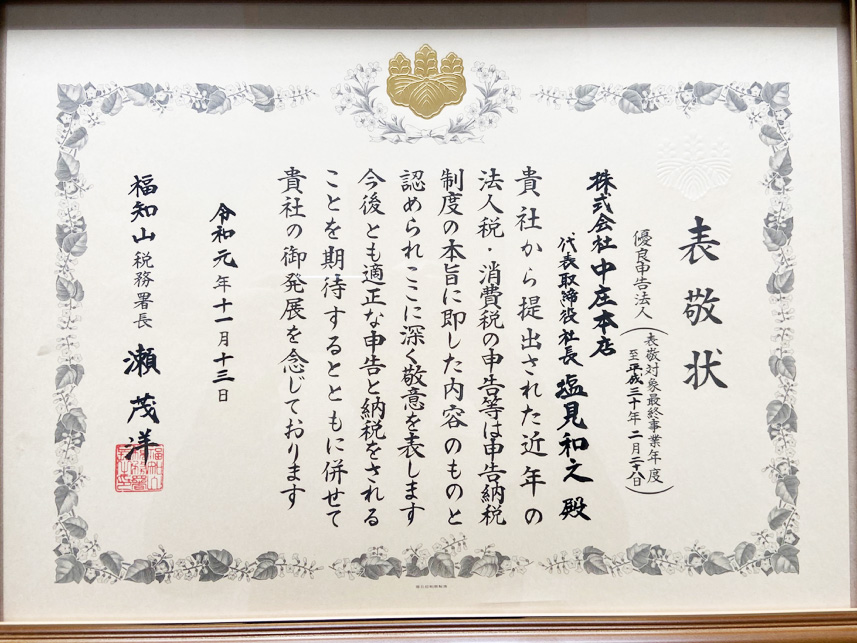 表敬状
優良申告法人
(表敬対象最終事業年度
至平成三十年二月二十八日)
株式会社中庄本店
代表取締役社長 塩見和之 殿
貴社から提出された近年の
法人税・消費税の申告等は申告納税
制度の本旨に即した内容のものと
認められここに深く敬意を表します
今後とも適正な申告と納税をされる
ことを期待するとともに併せて
貴社の御発展を念じております
令和元年十一月十三日
福知山税務署長 瀬茂洋